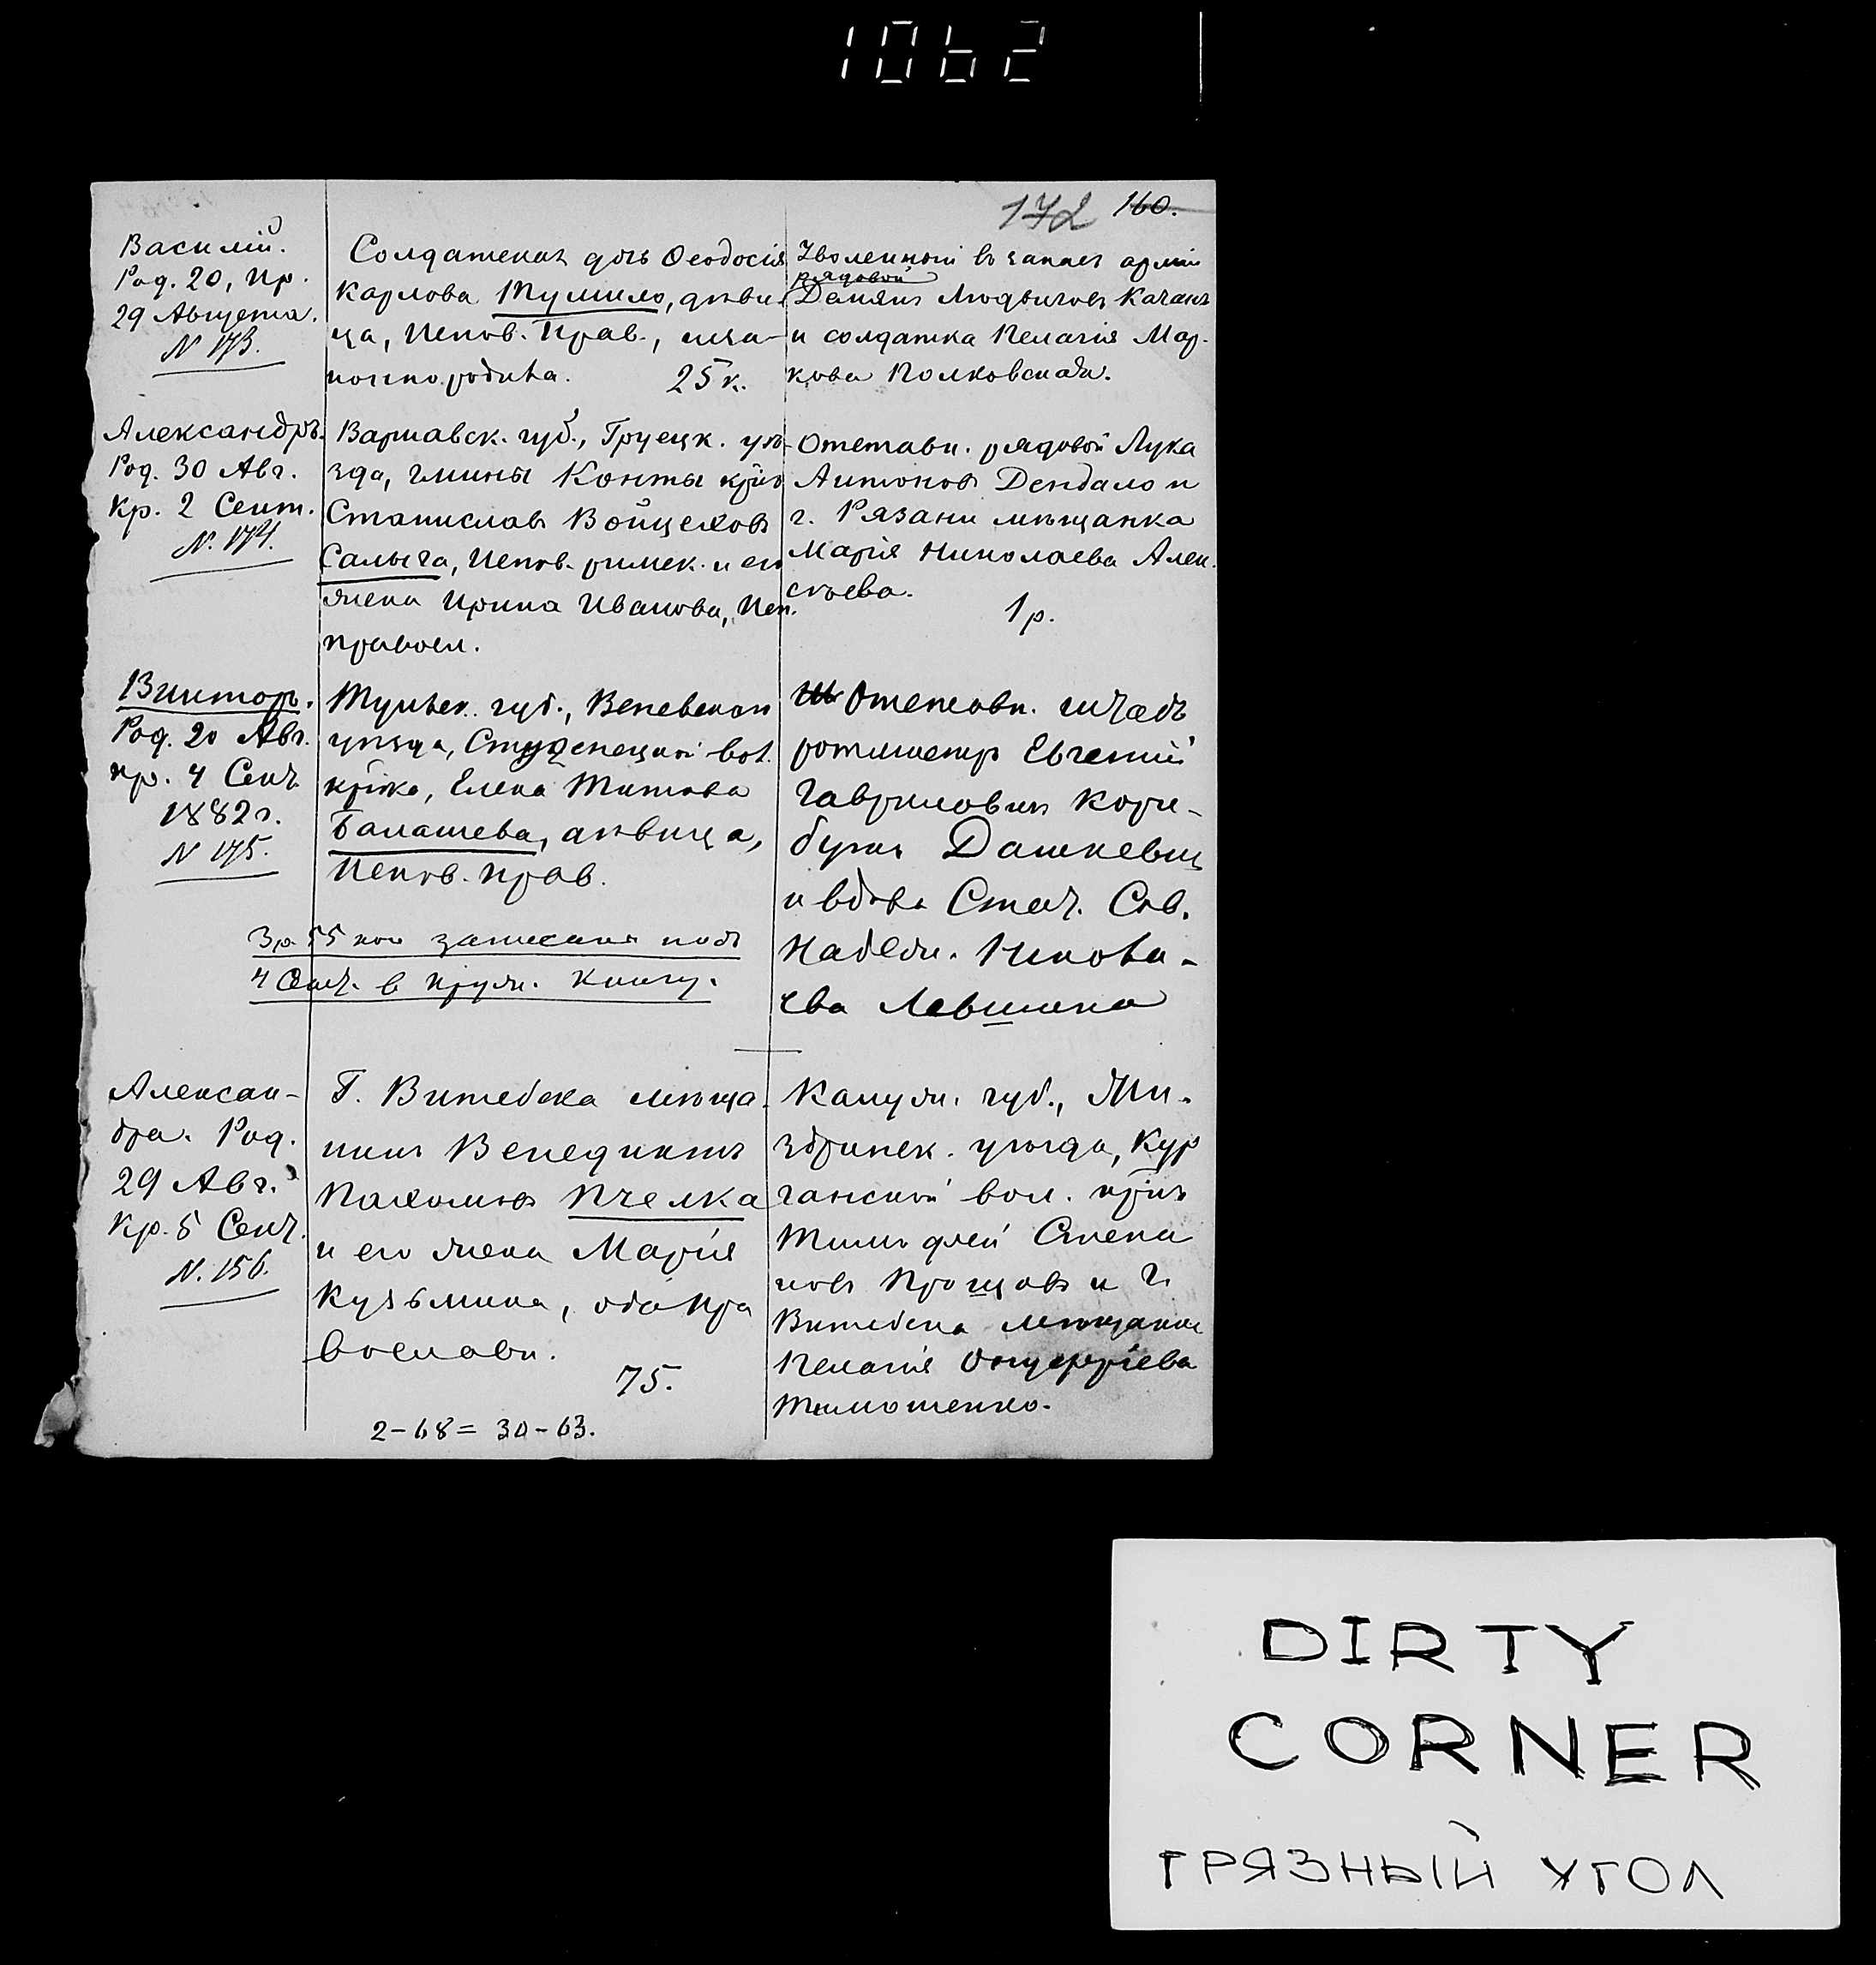 1062
172 160.
Василій.
Род. 20, кр.
29 Августа.
N 173.
Солдатская дочь Ѳеодосія
Карлова Тумило, дѣви-
ца, Испов. Прав.,
25 к.
Уволенный въ запасъ арміи
рядовой
Демянъ Людвиговъ Качанъ
и солдатка Пелагія Мар-
кова
Александръ.
Род. 30 Авг.
Кр. 2 Сент.
N. 174.
Варшавск. губ., Груецк. уѣ-
зда, гмины Конты кр-нъ
Станиславъ Войцеховъ
Салыга, Испов. римск. и его
жена Ирина Иванова, Исп.
православ.
Отставн. рядовой Лука
Антоновъ Дендало и
г. Рязани мѣщанка
Марія Николаева Алек-
сѣева.
1 р.
Викторъ.
Род. 20 Авг.
кр. 4 Сент.
1882 г.
N 175.
Тульск. губ., Веневскаго
уѣзда, Студенецкой вол.
кр-ка, Елена Титова
Балашева, дѣвица,
Испов. прав.
3 р. 55 коп записаны подъ
4 Сент. в круж. книгу.
Отставн. штабъ
ротмистръ Евгеній
Гавриловичъ Кори-
бутъ Дашкевич
и вдова Стат. Сов.
Надежд. Никола-
ева Левшина
Алексан-
дра. Род.
29 Авг.
Кр. 5 Сент.
N. 156.
Г. Витебска мѣща-
нинъ Венедиктъ
Пахомовъ Пчелка
и его жена Марія
Кузьмина, оба пра
вославн.
75.
Калужн. губ., Жи-
здринск. уѣзда, Кур
ганской вол. кр-нъ
Тимофей Степа
новъ Прощовъ и г.
Витебска мѣщанка
Пелагія Онуфріева
Тимошенко.
2-68 = 30-63.
DIRTY
CORNER
ГРЯЗНЫЙ УГОЛ